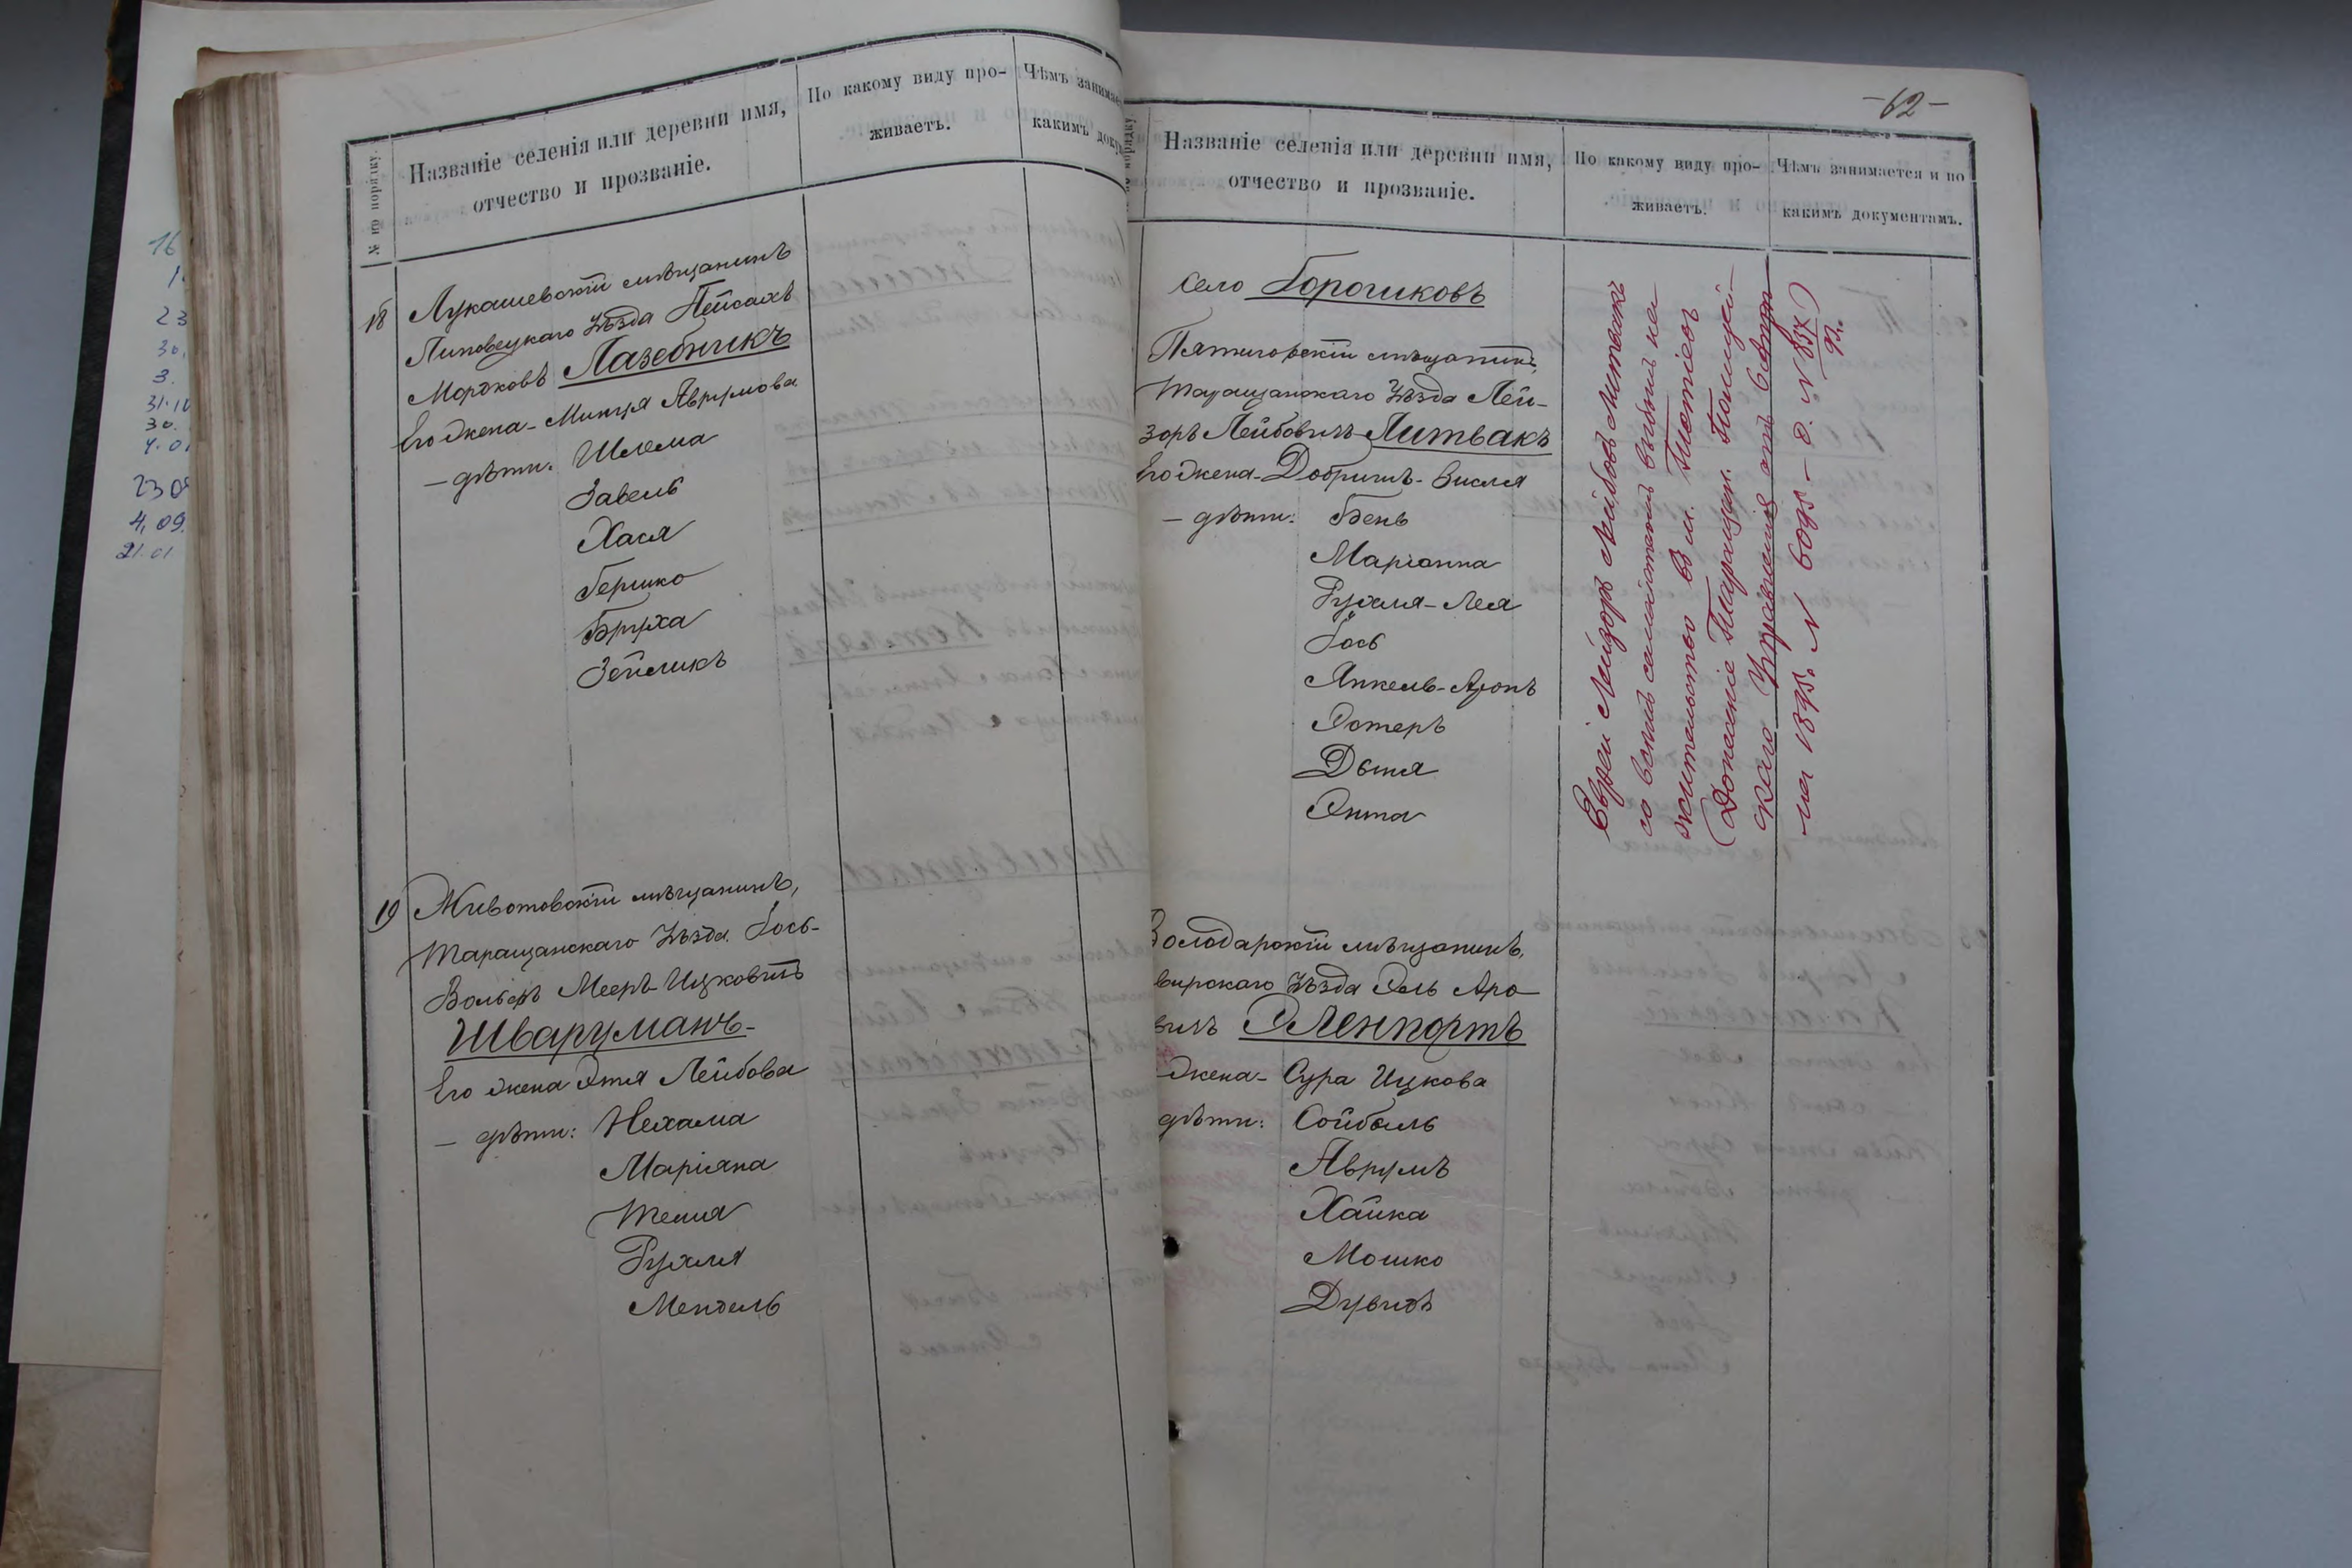 16
1
23
30.
3.
31.10
30.
4.01
23.09
4.09.
21.01
№ по порядку.
Названіе селенія или деревни имя,
отчество и прозваніе.
По какому виду про-
живаетъ.
Чѣмъ занимае
какимъ доку
18
Лукашевскій мѣщанинъ
Липовецкаго Уѣзда Пейсахъ
Мордковъ Лазебникъ
Его жена - Минця Аврумова
— дѣти: Шлема
Завель
Хася
Гершко
Бруха
Зейликъ
19
Животовскій мѣщанинъ,
Таращанскаго Уѣзда Іось-
Вольфъ Мееръ Ицковичъ
Шварцманъ-
Его жена Этя Лейбова
— дѣти: Нехама
Маріяна
Темя
Рухля
Мендель
-62-
порядку.
Названіе селенія или деревни имя,
отчество и прозваніе.
По какому виду про-
живаетъ.
Чѣмъ занимается и по
какимъ документамъ.
Село Горошковъ
Пятигорскій мѣщанинъ,
Таращанскаго Уѣзда Лей-
зоръ Лейбовичъ Литвакъ
Его жена - Добришъ-Висля
— дѣти: Бень
Маріанна
Рухля-Лея
Іось
Янкель-Аронъ
Эстеръ
Двыя
Энта
Еврей Лейзоръ Лейбовъ Литвакъ
со всемъ семействомъ выбылъ на
жительство въ м. Тетіевъ
(Донесеніе Таращан. Полицей-
скаго Управленія отъ
на 1895. N 6095 - д. N 837/92.)
Володарскій мѣщанинъ,
вирскаго Уѣзда Эль Аро
вичъ Эленпортъ
жена - Сура Ицкова
дѣти: Сойбель
Аврумъ
Хайка
Мошко
Дувидъ